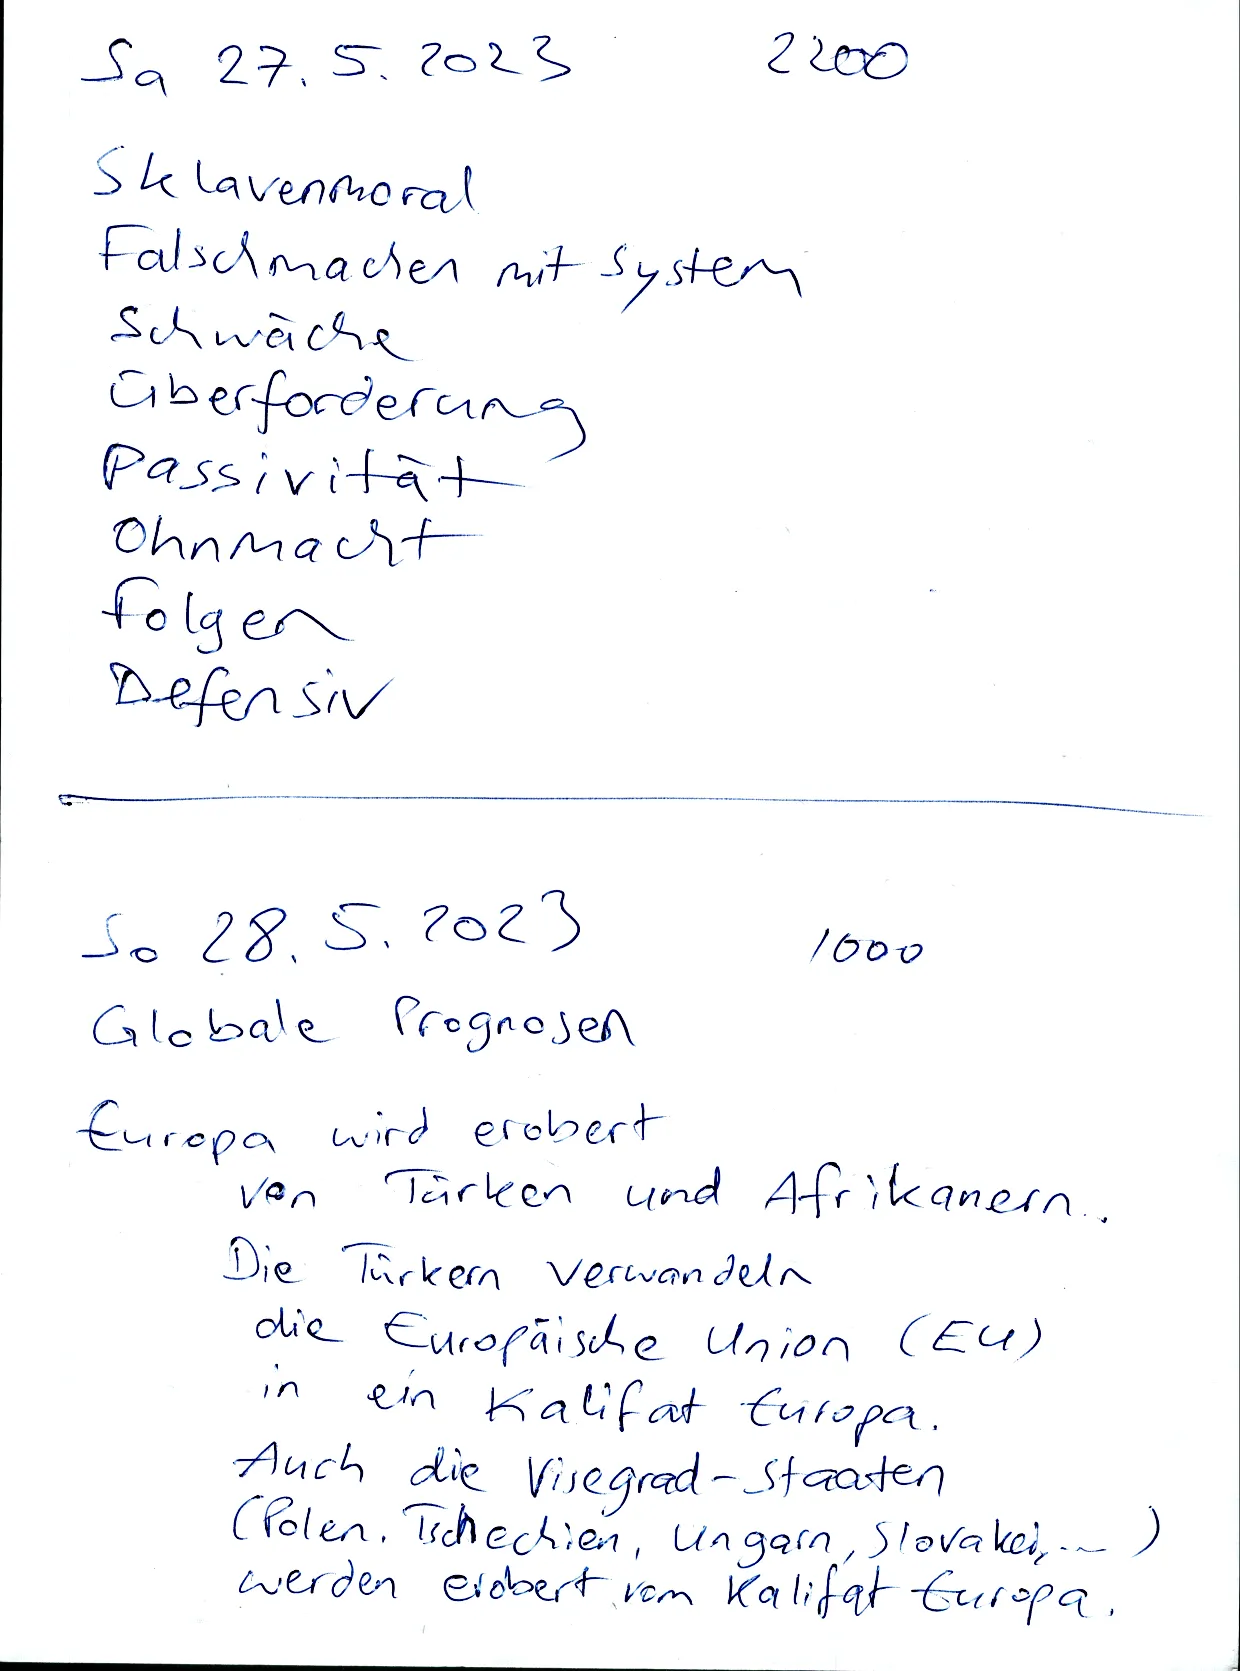 Sa 27.5.2023 2200
Sklavenmoral
Falschmachen mit System
Schwäche
Überforderung
Passivität
Ohnmacht
Folgen
Defensiv
So 28.5.2023 1000
Globale Prognosen
Europa wird erobert
von Türken und Afrikanern..
Die Türkern verwandeln
die Europäische Union (EU)
in ein Kalifat Europa.
Auch die Visegrad-Staaten
(Polen, Tschechien, Ungarn, Slovakei, ...)
werden erobert vom Kalifat Europa.